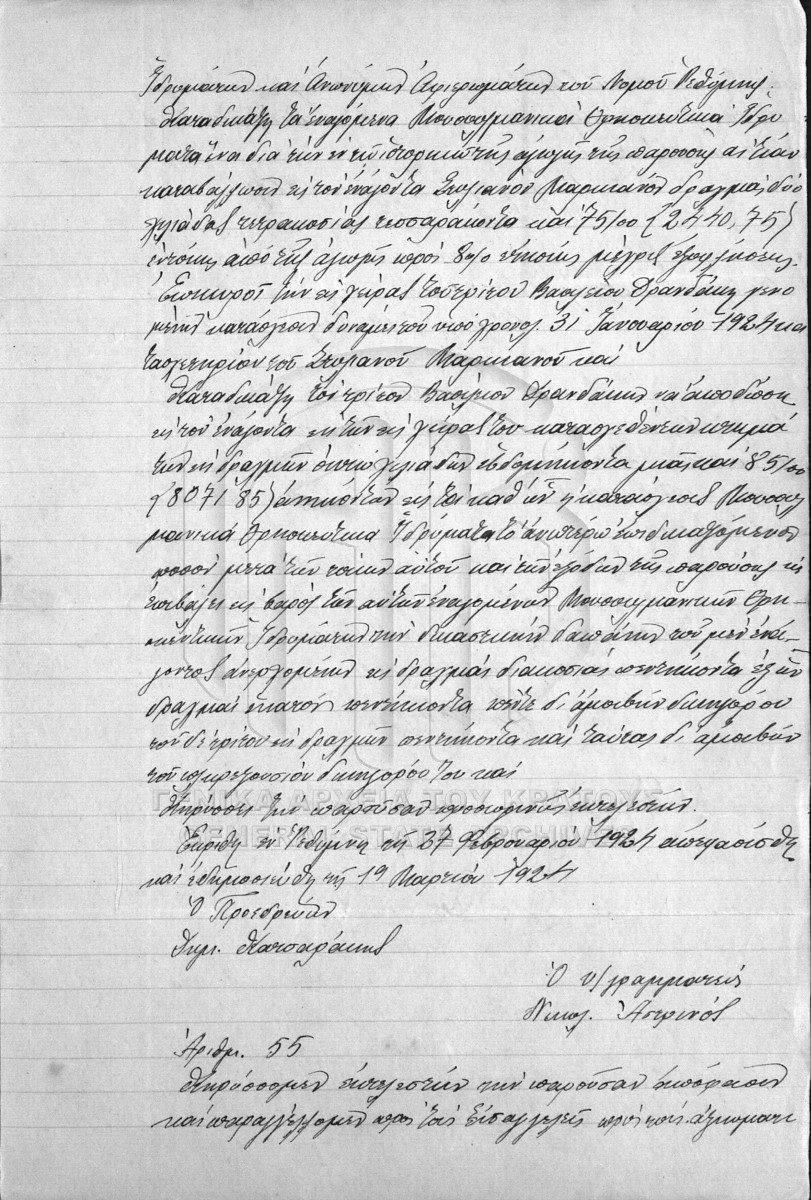 Ἱδρυμάτων καὶ Ἀνωνύμων Ἀφιερωμάτων τοῦ Νομοῦ Ῥεθύμνης.
Καταδικάζει τὰ ἐναγόμενα Μουσουλμανικὰ Θρησκευτικὰ Ἱδρύ
ματα ἵνα διὰ τὴν ἐν τῷ ἱστορικῷ τῆς ἀγωγῆς τῆς παρούσης αἰτίαν
καταβάλωσιν εἰς τὸν ἐνάγοντα Στυλιανὸν Μαρκιανὸν δραχμὰς δύο
χιλιάδας τετρακοσίας τεσσαράκοντα καὶ 75/00 (2440,75)
ἐντόκως ἀπὸ τῆς ἀγωγῆς πρὸς 8% ἐτησίως μέχρις ἐξοφλήσεως.
Ἐπικυροῖ τὴν εἰς χεῖρας τοῦ τρίτου Βασιλείου Δρανδάκη γενο
μένην κατάσχεσιν δυνάμει τοῦ ὑπὸ χρονολ. 31 Ἰανουαρίου 1924 κα
τασχετηρίου τοῦ Στυλιανοῦ Μαρκιανοῦ καὶ
Καταδικάζει τὸν τρίτον Βασίλειον Δρανδάκην νὰ ἀποδώσῃ
εἰς τὸν ἐνάγοντα ἐκ τῶν εἰς χεῖρας του κατασχεθέντων χρημά
των ἐκ δραχμῶν ὀκτὼ χιλιάδων ἑβδομήκοντα μιᾶς καὶ 85/00
(8071 85) ἀνηκόντων εἰς τὰ καθ' ὧν ἡ κατάσχεσις Μουσουλ
μανικὰ Θρησκευτικὰ Ἱδρύματα τὸ ἀνωτέρω ἐπιδικαζόμενον
ποσὸν μετὰ τῶν τόκων αὐτοῦ καὶ τῶν ἐξόδων τῆς παρούσης
Ἐπιβάλει εἰς βάρος τῶν αὐτῶν ἐναγομένων Μουσουλμανικῶν Θρη
σκευτικῶν Ἱδρυμάτων τὴν δικαστικὴν δαπάνην τοῦ μὲν ἐνά
γοντος ἀνερχομένην εἰς δραχμὰς διακοσίας πεντήκοντα ἐξ ὧν
δραχμαὶ ἑκατὸν πεντήκοντα πέντε δι' ἀμοιβὴν δικηγόρου
τοῦ δὲ τρίτου εἰς δραχμὰς πεντήκοντα καὶ ταύτας δι' ἀμοιβὴν
τοῦ πληρεξουσίου δικηγόρου του καὶ
Κηρύσσει τὴν παροῦσαν προσωρινῶς ἐκτελεστήν.
Ἐκρίθη ἐν Ῥεθύμνῃ τῇ 27 Φεβρουαρίου 1924 ἀπεφασίσθη
καὶ ἐδημοσιεύθη τῇ 19 Μαρτίου 1924
Ὁ Προεδρεύων
Δημ. Κατσαράκης
Ὁ υ/γραμματεύς
Νικολ. Ἀστρινός
Ἀριθμ. 55
Κηρύσσομεν ἐκτελεστὴν τὴν παροῦσαν ἀπόφασιν
καὶ παραγγέλλομεν πρὸς τοὺς Εἰσαγγελεῖς πρὸς τοὺς ἀξιωματι
ΓΕΝΙΚΑ ΑΡΧΕΙΑ ΤΟΥ ΚΡΑΤΟΥΣ
GENERAL STATE ARCHIVES